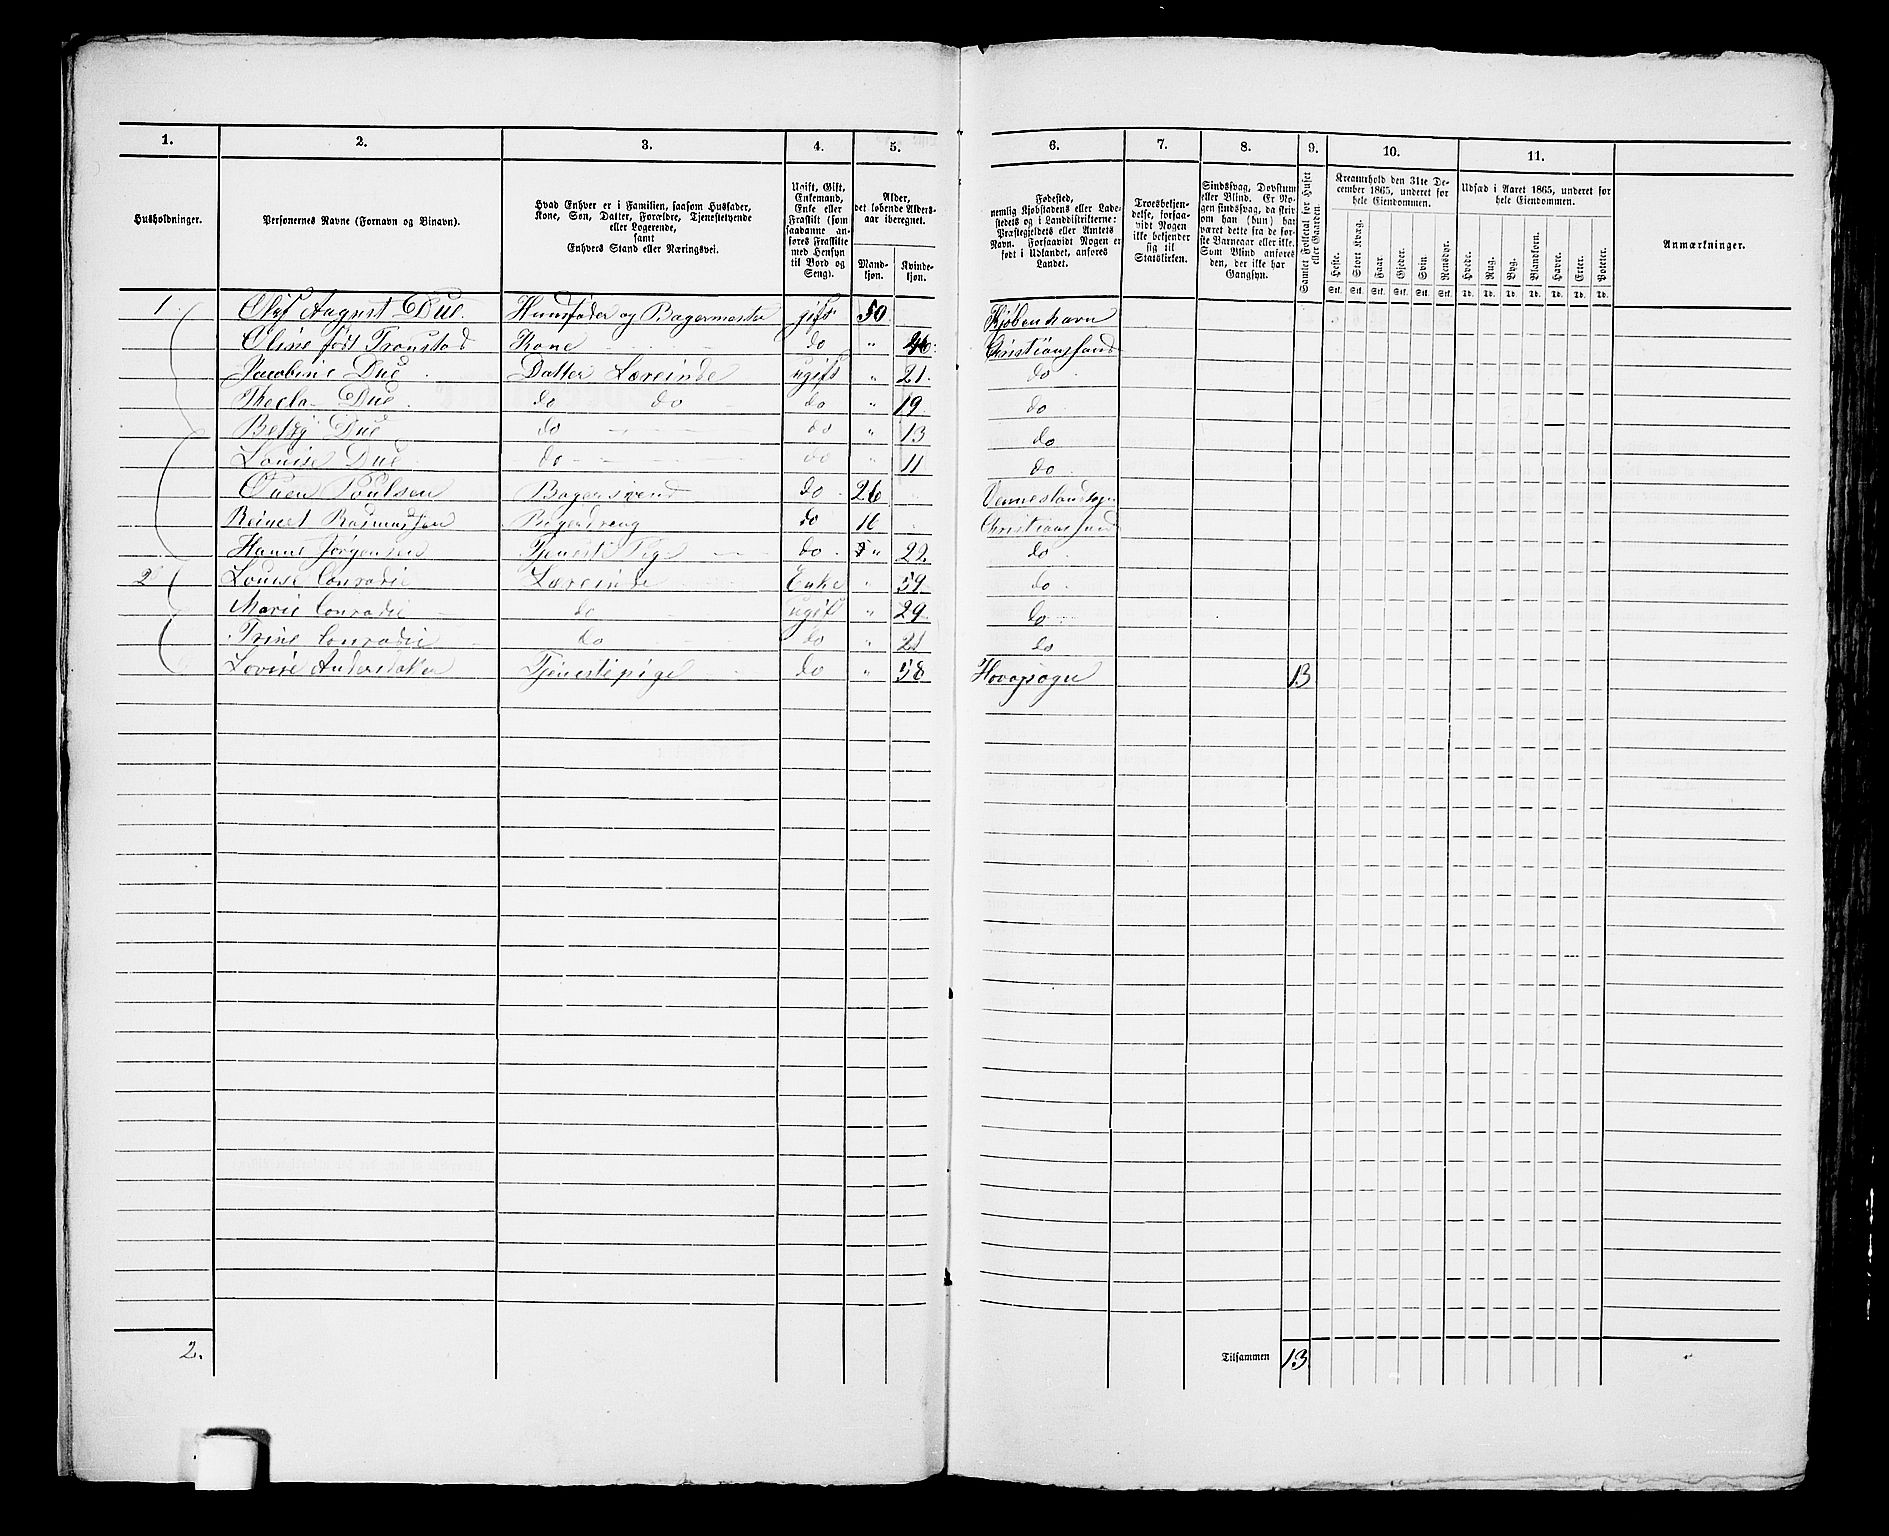 1. 2. 3. 4. 5. 6. 7. 8. 9. 10. 11.
Husholdninger.
Personernes Navne (Fornavn og Binavn).
Hvad Enhver er i Familien, saasom Husfader,
Kone, Søn, Datter, Forældre, Tjenestetyende
eller Logerende,
samt
Enhvers Stand eller Næringsvei.
Ugift, Gift,
Enkemand,
Enke eller
Fraskilt (som
saadanne anføres
Fraskilte
med Hensyn
til Bord og
Seng).
Alder,
det løbende Alders-
aar iberegnet.
Mand-
kjøn.
Kvinde-
kjøn.
Fødested,
nemlig Kjøbstadens eller Lade-
stedets og i Landdistrikterne:
Præstegjeldets eller Amtets
Navn. Forsaavidt Nogen er
født i Udlandet, anføres
Landet.
Troesbekjen-
delse, forsaa-
vidt Nogen
ikke bekjender
sig til
Statskirken.
Sindssvag, Døvstum
eller Blind. Er No-
gen sindssvag, da skri-
ves om han (hun) har
været dette fra de før-
ste Barneaar eller ikke.
Som Blind anføres
den, der ikke har
Gangsyn.
Samlet Folketal for Huset
eller Gaarden.
Kreaturhold den 31te De-
cember 1865, underet for
hele Eiendommen.
Heste. Stort Kvæg. Faar. Gjeder. Svin. Rensdyr.
Stk. Stk. Stk. Stk. Stk. Stk.
Udsæd i Aaret 1865, underet for
hele Eiendommen.
Hvede. Rug. Byg. Blandkorn. Havre. Erter. Poteter.
Td. Td. Td. Td. Td. Td. Td.
Anmærkninger.
1 Oluf August Due. Huusfader og Bagermester gift 50 Kjøbenhavn
Oline født Tronstad Kone do " Christianssand
Jacobine Due Datter Lærerinde ugift " 21. do
Thecla Due do do do " 19 do
Betsy Due do do " 13 do
Louise Due do do " 11 do
Poulsen Bagersvend do 26 Venneslandsogn
Reinert Rasmussen Bagerdreng do 16 Christianssand
Hanne Jørgensen Tjeneste Pige do " 22. do
2 Louise Conradie Lærerinde Enke " 59 do
Marie Conradie do ugift " 29 do
Trine Conradie do do " 21 do
Lovise Andersdatter Tjenestepige do " 58 Hovogsogn 13
2.
Tilsammen 13